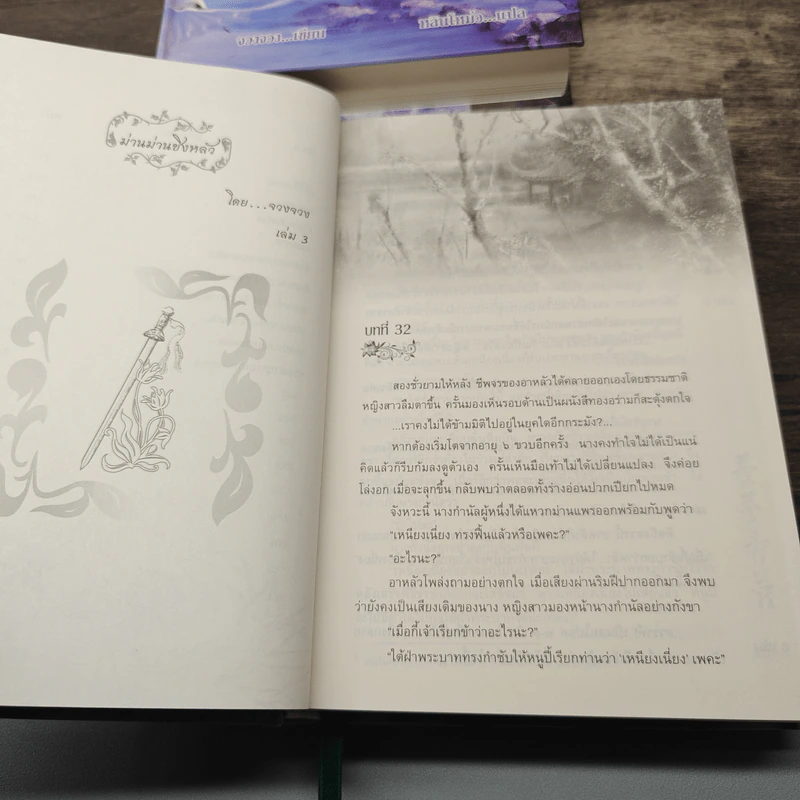 จวงจวง...เขียน
หลินโหม่ว...แปล
ม่านม่านชิงหลัว
โดย...จวงจวง
เล่ม 3
บทที่ 32
สองชั่วยามให้หลัง ชีพจรของอาหลัวได้คลายออกเองโดยธรรมชาติ
หญิงสาวลืมตาขึ้น ครั้นมองเห็นรอบด้านเป็นผนังสีทองอร่ามก็สะดุ้งตกใจ
...เราคงไม่ได้ข้ามมิติไปอยู่ในยุคใดอีกกระมัง?...
หากต้องเริ่มโตจากอายุ ๖ ขวบอีกครั้ง นางคงทำใจไม่ได้เป็นแน่
คิดแล้วก็รีบก้มลงดูตัวเอง ครั้นเห็นมือเท้าไม่ได้เปลี่ยนแปลง จึงค่อย
โล่งอก เมื่อจะลุกขึ้น กลับพบว่าตลอดทั้งร่างอ่อนปวกเปียกไปหมด
จังหวะนี้ นางกำนัลผู้หนึ่งได้แหวกม่านแพรออกพร้อมกับพูดว่า
“เหนียงเนี่ยง ทรงฟื้นแล้วหรือเพคะ?”
“อะไรนะ?”
อาหลัวโพล่งถามอย่างตกใจ เมื่อเสียงผ่านริมฝีปากออกมา จึงพบ
ว่ายังคงเป็นเสียงเดิมของนาง หญิงสาวมองหน้านางกำนัลอย่างกังขา
“เมื่อกี้เจ้าเรียกข้าว่าอะไรนะ?”
“ใต้ฝ่าพระบาททรงกำชับให้หนูปี้เรียกท่านว่า ‘เหนียงเนี่ยง’ เพคะ”